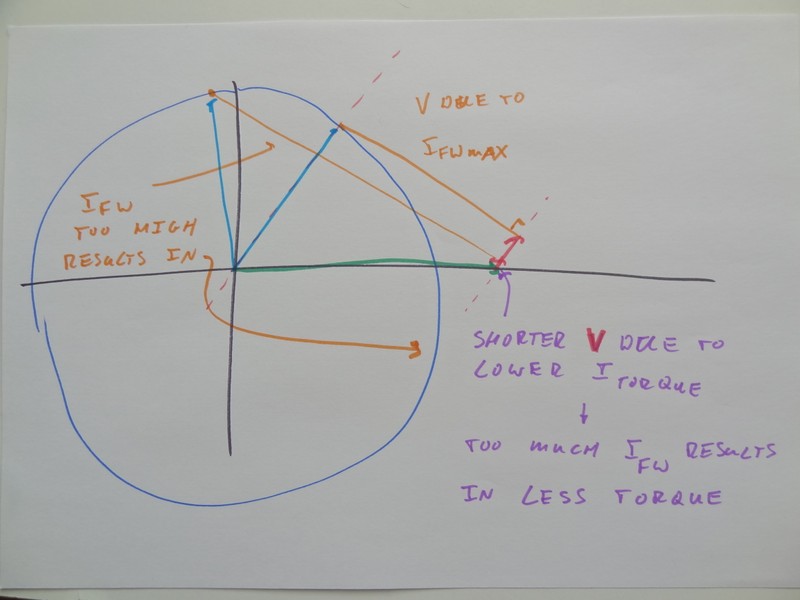 V DUE TO
I FW MAX
I FW
TOO HIGH
RESULTS IN
SHORTER V DUE TO
LOWER I TORQUE
TOO MUCH I FW RESULTS
IN LESS TORQUE